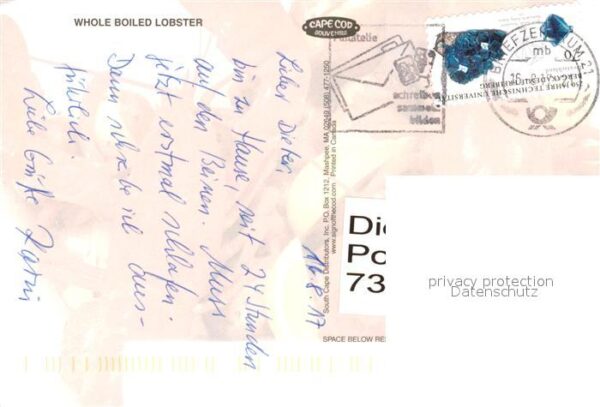 WHOLE BOILED LOBSTER
CAPE COD
SOUVENIRS
16.8.17
Lieber Dieter,
bin zu Hause, seit 24 Stunden
auf den Beinen. Muss
jetzt erstmal schlafen.
Dann schreibe ich aus-
führlich.
Liebe Grüße Katrin
South Cape Distributors, Inc. P.O. Box 1212, Mashpee, MA 02649 (508) 477-1250
www.signofthecod.com Printed in Canada
SPACE BELOW RES
Philatelie
schreiben
sammeln
bilden
250 JAHRE TECHNISCHE UNIVERSITÄT
BERGAKADEMIE FREIBERG
BRIEFZENTRUM 21
mb
Die
Po
73
privacy protection
Datenschutz